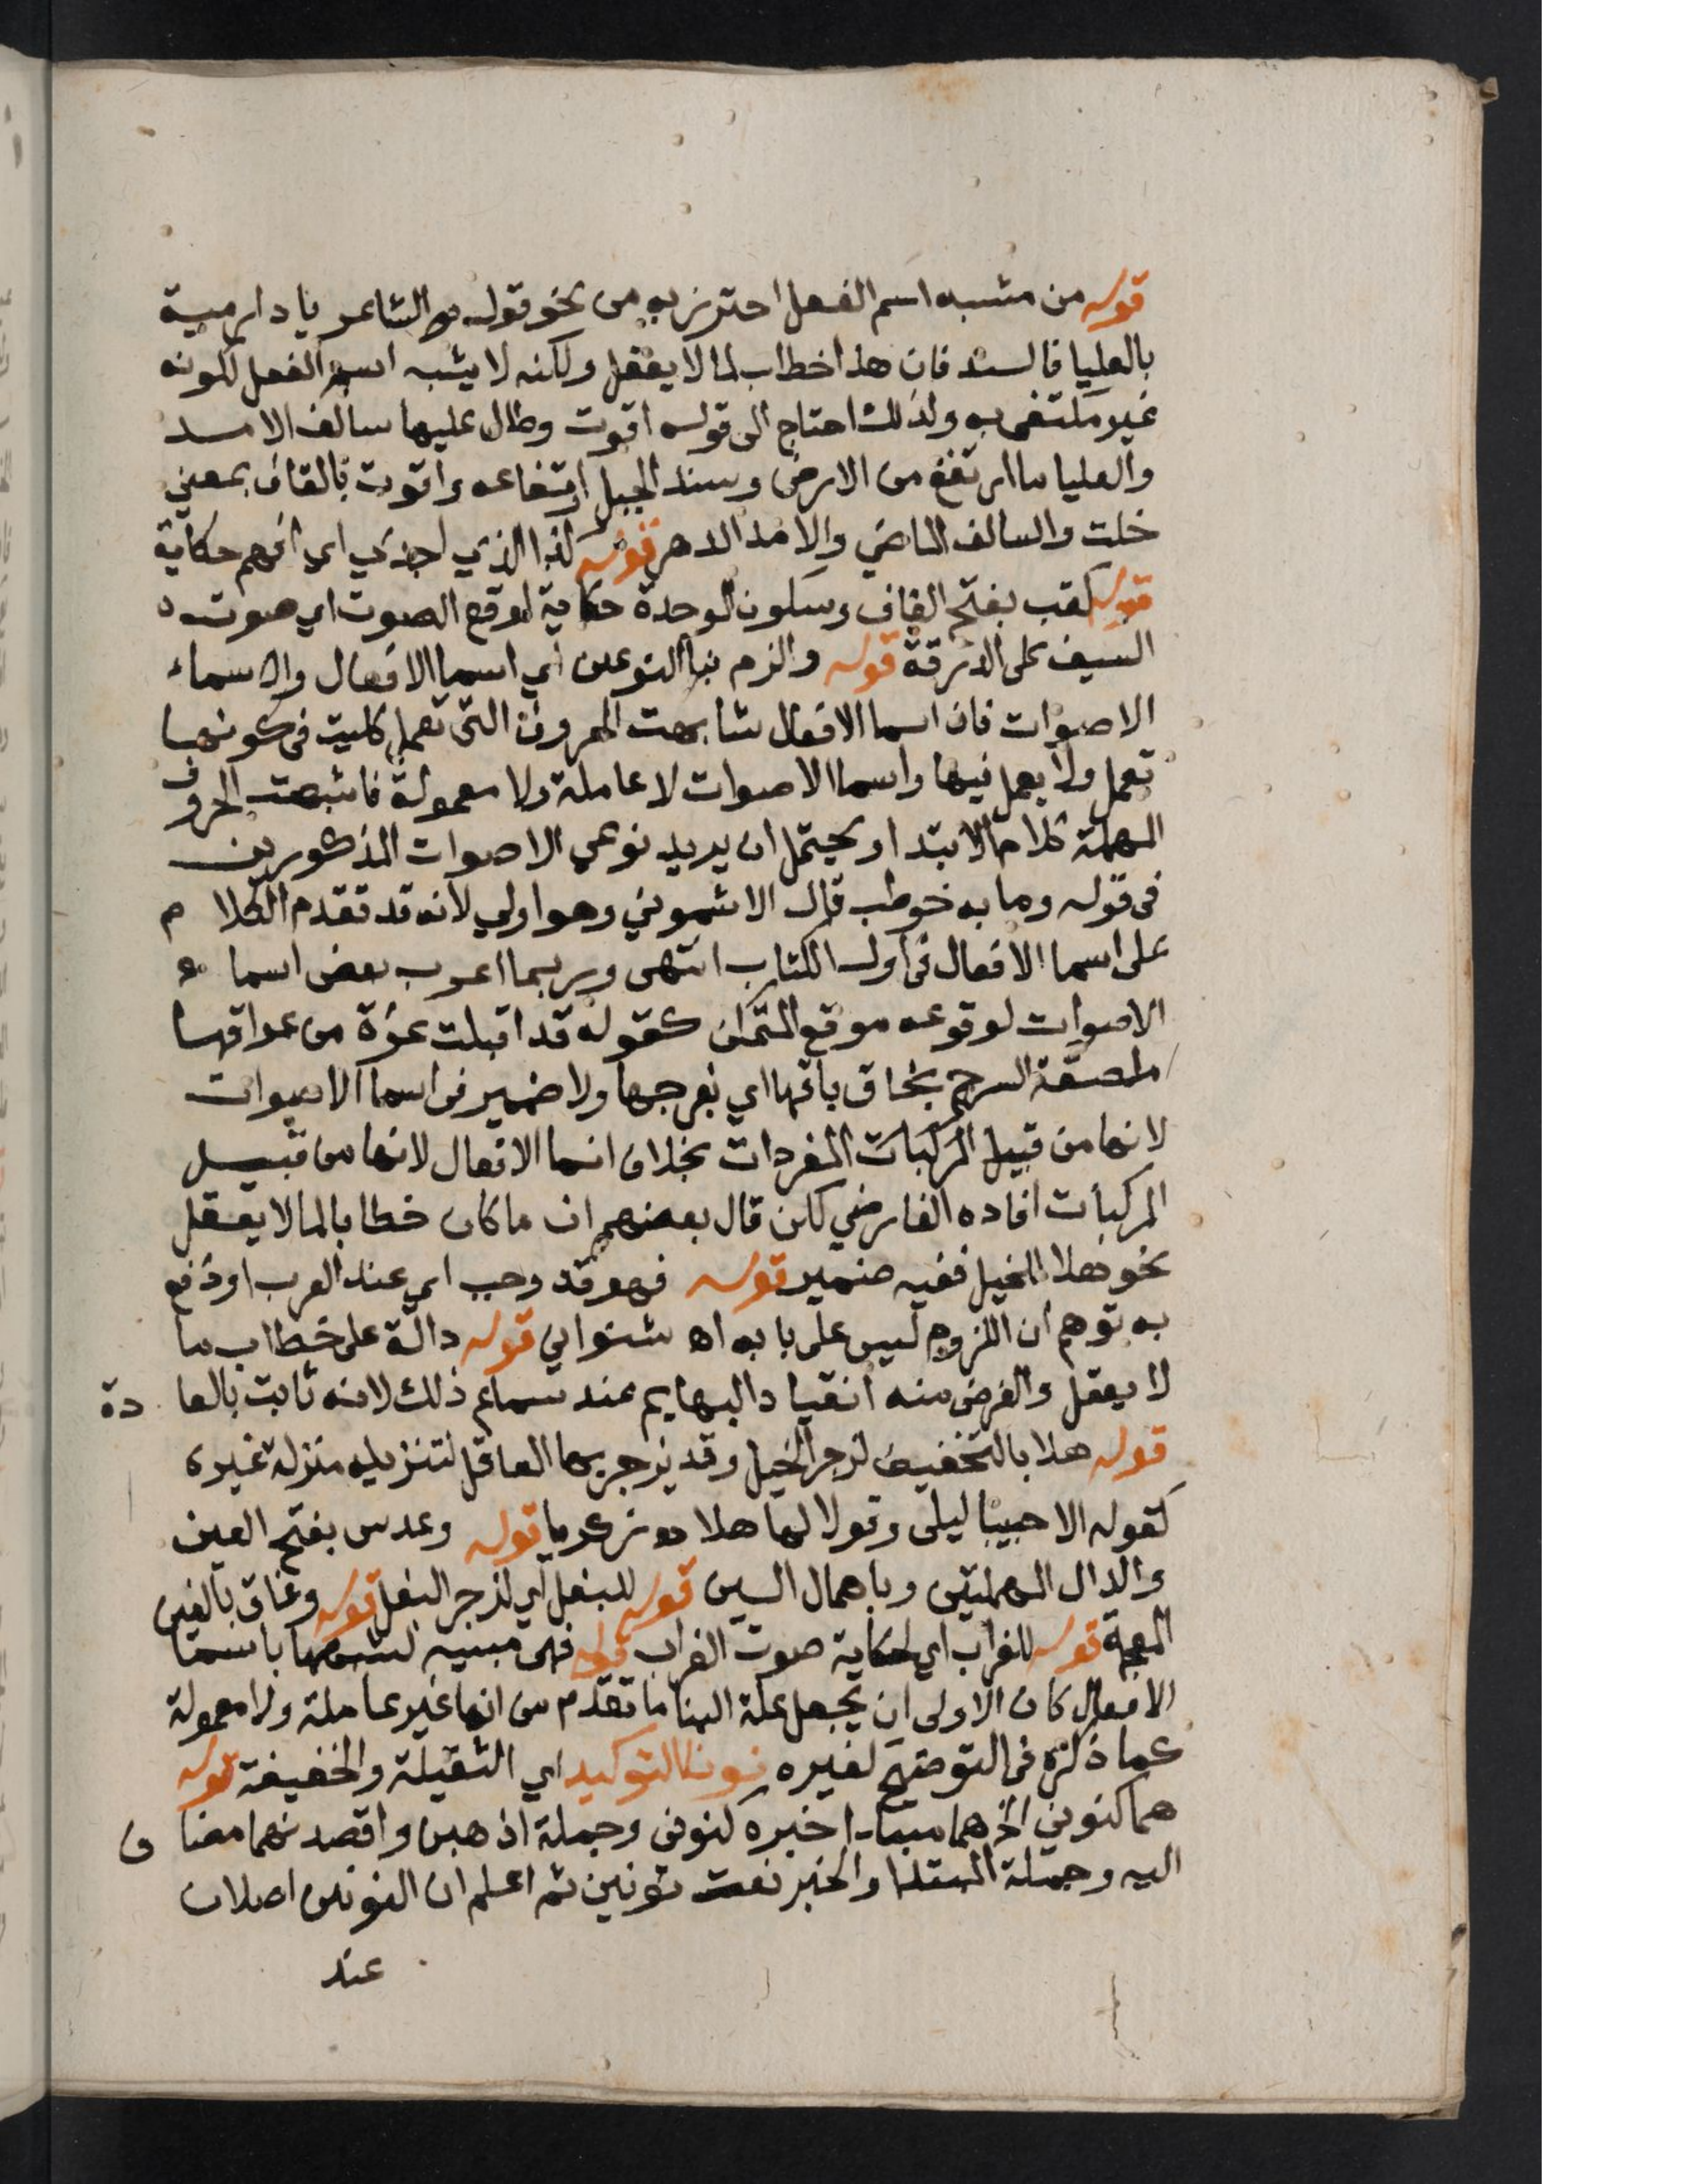 قوله من مشبه اسم الفعل احترز به من نحو قوله الشاعر يا دار مية
بالعليا فالسند فان هذا خطاب لما لا يعقل ولكنه لا يشبه اسم الفعل لكونه
غير مكتفى به ولذلك احتاج الى قوله اقوت وطال عليها سالف الامد
والعليا ما ارتفع من الارض وسند الجبل ارتفاعه واقوت بالقاف بمعنى
خلت والسالف الماضي والامد الدهر قوله كذا الذي اجدي اي افهم حكاية
قوله كقب بفتح القاف وسكون الوحدة حكاية لوقع الصوت اي صوت
السيف على الدرقة قوله والزم بنا النوعين اي اسما الافعال والاسماء
الاصوات فان اسما الافعال شابهت الحروف التى تعمل كليت فى كونها
تعمل ولا يعمل فيها واسما الاصوات لا عاملة ولا معمولة فاشبهت الحروف
المهملة كلام الابتدا ويحتمل ان يريد نوعي الاصوات المذكورين
فى قوله وما به خوطب قال الاشموني وهو اولي لانه قد تقدم الكلا م
على اسما الافعال فى اول الكتاب انتهى وربما اعرب بعض اسما ء
الاصوات لوقوعه موقع المتمكن كقوله قد اقبلت عزة من عراقها
ملصقة السرج بخاق باقها اي بفرجها ولا ضمير فى اسما الاصوات
لانها من قبيل المركبات المفردات بخلاف اسما الافعال لانها من قبيل
المركبات افاده الفارضي لكن قال بعضهم ان ما كان خطابا لما لا يعقل
نحو هلا للخيل ففيه ضمير قوله فهو قد وجب اي عند العرب او دفع
به توهم ان اللزوم ليس على بابه اه شنواني قوله دالة على خطاب ما
لا يعقل والغرض منه انقياد البهايم عند سماع ذلك لانه ثابت بالعا دة
قوله هلا بالتخفيف لزجر الخيل وقد يزجر بها العاقل لتنزيله منزلة غيره
كقوله الا حييا ليلى وقولا لها هلا قوله وعدس بفتح العين
والدال المهملتين وباهمال السين قوله للبغل اي لزجر البغل قوله وغاق بالغين
المعجمة قوله للغراب اي لحكاية صوت الغراب قوله فهى مبنيه لشبهها باسما
الافعال كان الاولى ان يجعل علة البنا ما تقدم من انها غير عاملة ولا معمولة
كما ذكره فى التوضيح لغيره نونا التوكيد اي الثقيلة والخفيفة قوله
هما كنوني الخ هما مبتدا خبره كنونى وجملة اذهبن واقصدنهما مضا ف
اليه وجملة المبتدا والخبر نعت نونين ثم اعلم ان النونين اصلان
عند